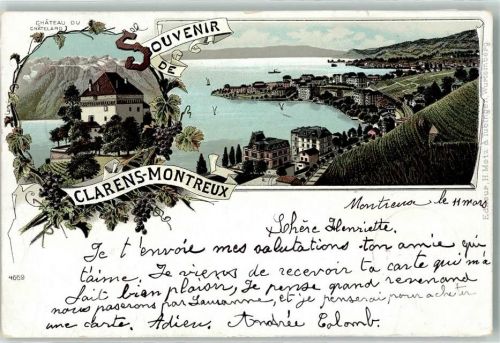 CHÂTEAU DU
CHÂTELARD
SOUVENIR
DE
CLARENS-MONTREUX
Editeur, H. Metz à Tubingen, Wurtemberg
4659
Montreux le 11 mars
Chère Henriette.
Je t'envoie mes salutations ton amie qui
t'aime. Je viens de recevoir ta carte qui m'a
fait bien plaisir, Je pense grand revenand
nous paserons par Lausanne, et je penserai pour acheter
une carte. Adieu. Andrée Colomb.